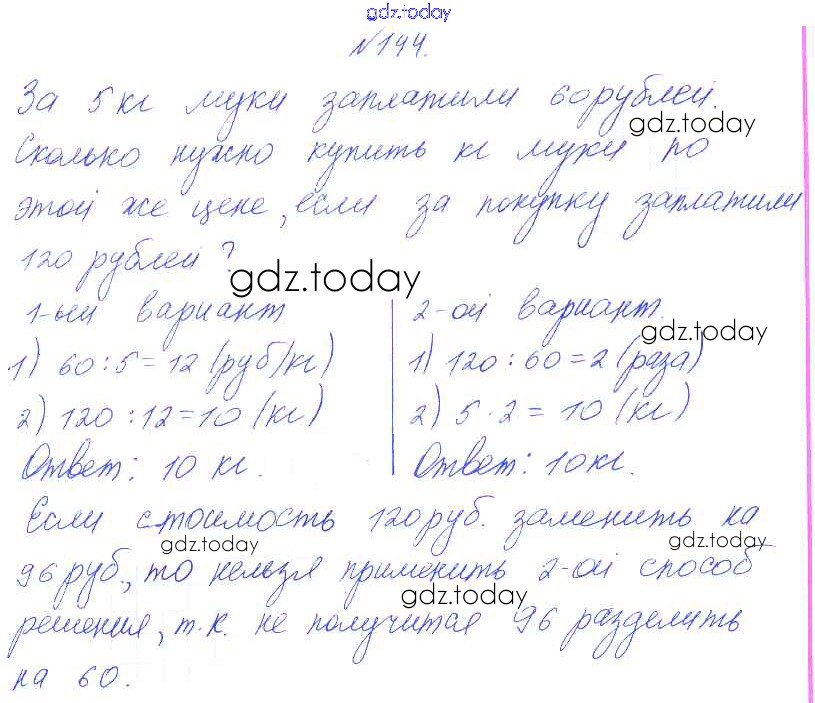 gdz.today
№144.
За 5 кг муки заплатили 60 рублей.
gdz.today
Сколько нужно купить кг муки по
этой же цене, если за покупку заплатили
120 рублей?
gdz.today
1-ый вариант
1) 60:5=12 (руб/кг)
2) 120:12=10 (кг)
Ответ: 10 кг.
2-ой вариант.
gdz.today
1) 120:60=2 (раза)
2) 5·2=10 (кг)
Ответ: 10 кг.
Если стоимость 120 руб. заменить на
gdz.today gdz.today
96 руб., то нельзя применить 2-ой способ
gdz.today
решения, т.к. не получится 96 разделить
на 60.